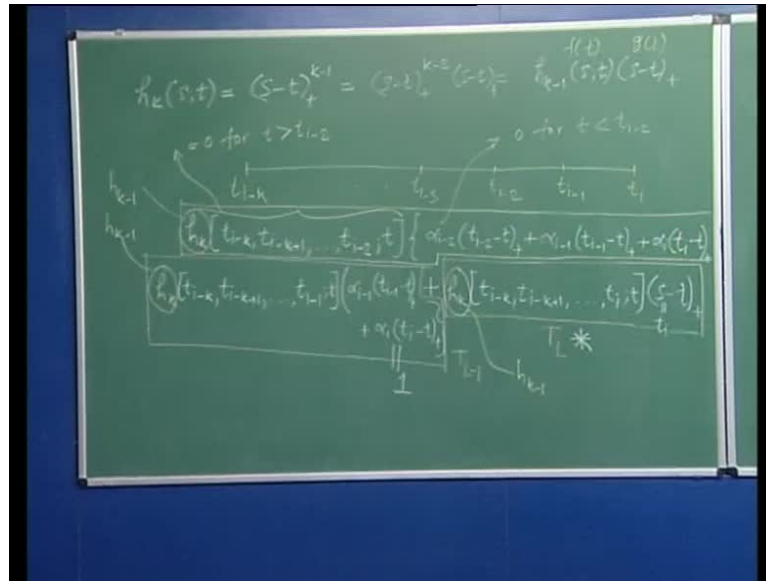 f(t) g(t)
h_k(s,t) = (s-t)_+^{k-1} = (s-t)_+^{k-2} (s-t)_+ = h_{k-1}(s,t) (s-t)_+
=0 for t>t_{i-2} 0 for t<t_{i-2}
t_{i-k} t_{i-3} t_{i-2} t_{i-1} t_i
h_{k-1}
h_k[t_{i-k}, t_{i-k+1}, ..., t_{i-2}; t] { α_{i-2}(t_{i-2}-t)_+ + α_{i-1}(t_{i-1}-t)_+ + α_i(t_i-t)_+
h_{k-1}
h_k[t_{i-k}, t_{i-k+1}, ..., t_{i-1}; t] (α_{i-1}(t_{i-1}-t)_+ + h_k[t_{i-k}, t_{i-k+1}, ..., t_i; t] (s-t)_+
+ α_i(t_i-t)_+ || t_i
|| T_{L-1} T_L *
1 h_{k-1}